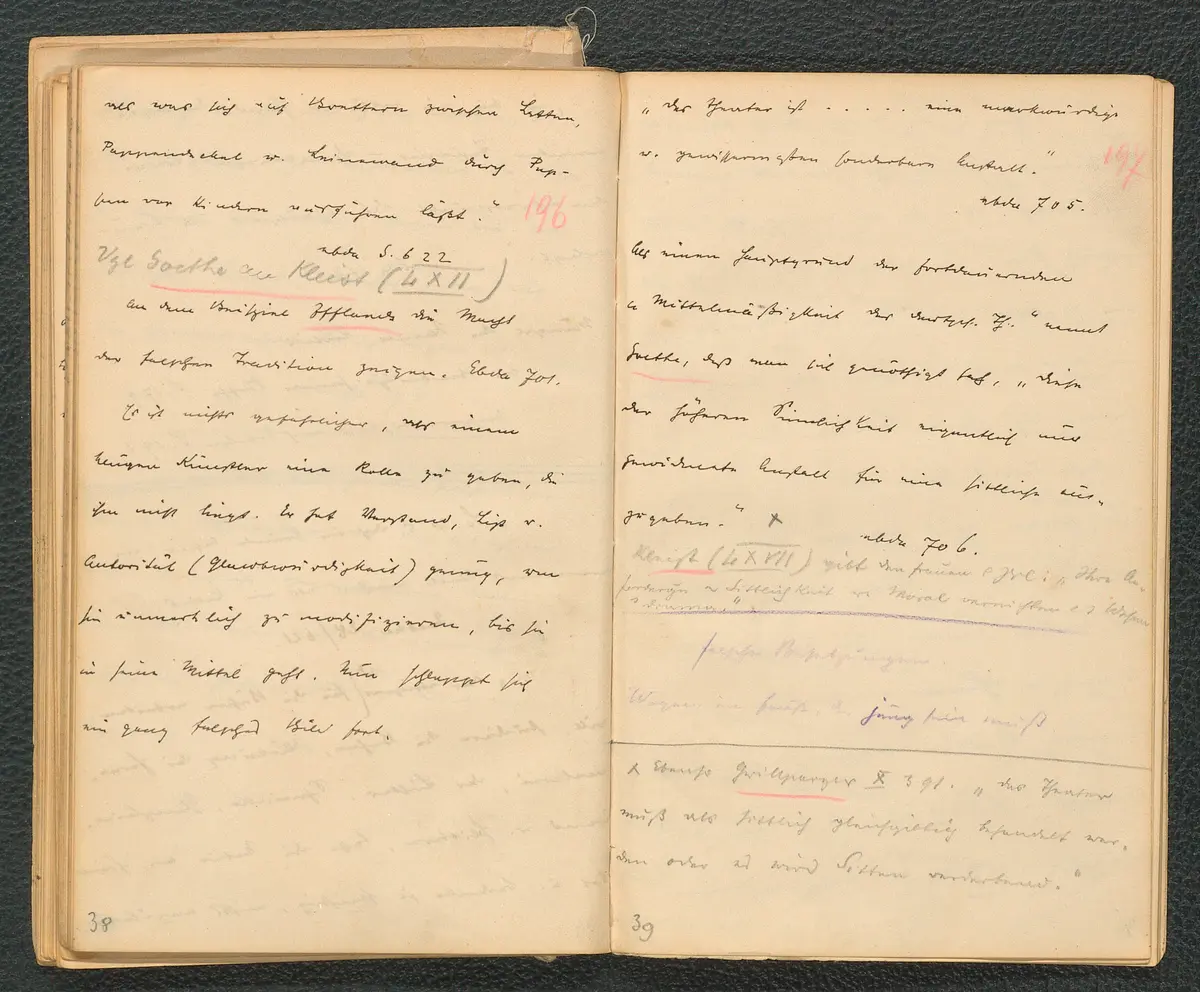 als was sich auf Brettern zwischen Latten,
Pappendeckel u. Leinewand durch Pup-
pen vor Kindern ausführen läßt."
196
ebda S. 622
Vgl Goethe an Kleist (4 XII)
An dem Beispiel Ifflands die Macht
der falschen Tradition zeigen. Ebda 701.
Es ist nichts gefährlicher, als einem
klugen Künstler eine Rolle zu geben, die
ihm nicht liegt. Er hat Verstand, List u.
Autorität (Glaubwürdigkeit) genug, um
sie unmerklich zu modifizieren, bis sie
in seine Mittel geht. Nun schleppt sich
ein ganz falsches Bild fort.
38
"das Theater ist . . . . . eine merkwürdige
u. gewissermaßen sonderbare Anstalt."
197
ebda 705.
Als einen Hauptgrund der fortdauernden
"Mittelmäßigkeit des deutsch. Th." nennt
Goethe, daß man sich genöthigt sah, "diese
der höheren Sinnlichkeit eigentlich nur
gewidmete Anstalt für eine sittliche aus-
zugeben." x
ebda 706.
Kleist (4 XVII) gibt den Frauen Schuld: "Ihre An-
forderungen Sittlichkeit u. Moral vernichten Wesen
Drama."
falsche Besetzungen.
Wagner im Faust, der jung sein muß
x Ebenso Grillparzer X 391. "das Theater
muß als sittlich gleichgiltig behandelt wer-
den oder es wird Sitten verderbend."
39